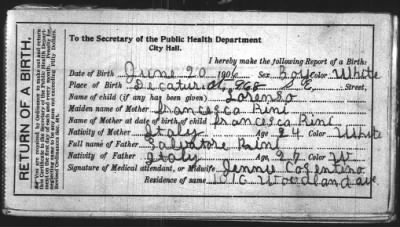 RETURN OF A BIRTH.
To the Secretary of the Public Health Department
City Hall.
I hereby make the following Report of a Birth:
Date of Birth June 20 190 Sex, Boy Color White
Place of Birth Decatur St, 968 S. E. Street,
Name of child (if any has been given) Lorenzo
Maiden name of Mother Francesca Rini
Name of Mother at date of birth of child Francesca Rini
Nativity of Mother Italy Age, 24 Color White
Full name of Father Salvatore Rini
Nativity of Father Italy Age, 27 Color W
Signature of Medical attendant, or Midwife Jennie Cosentino
Residence of same 1016 Woodland ave